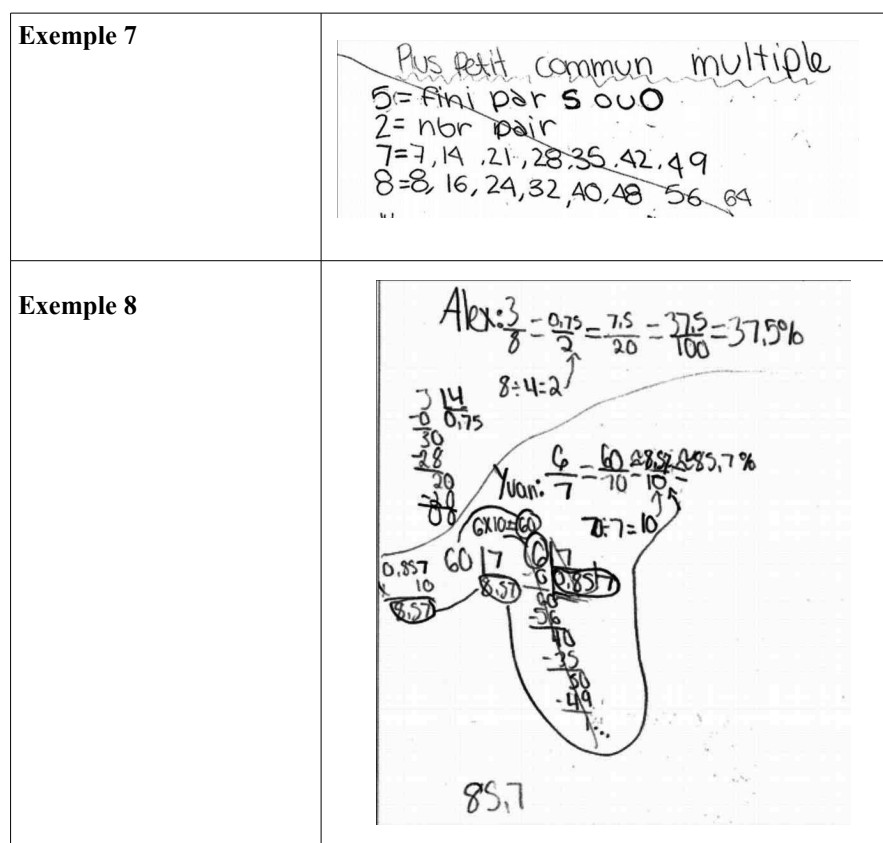 Exemple 7
Plus Petit commun multiple
5= fini par 5 ou 0
2= nbr pair
7=7,14,21,28,35,42,49
8=8,16,24,32,40,48 56 64
Exemple 8
Alex: 3/8 = 0,75/2 = 7,5/20 = 37,5/100 = 37,5%
8÷4=2
3 4
-0 0,75
30
-28
20
-20
00
Yvan: 6/7 = 60/70 ≈ 8,57/10 ≈ 85,7%
70÷7=10
6x10=60
60 7
8,57
0,857
10
8,57
6 7
-0 0,857
60
-56
40
-35
50
-49
1...
85,7